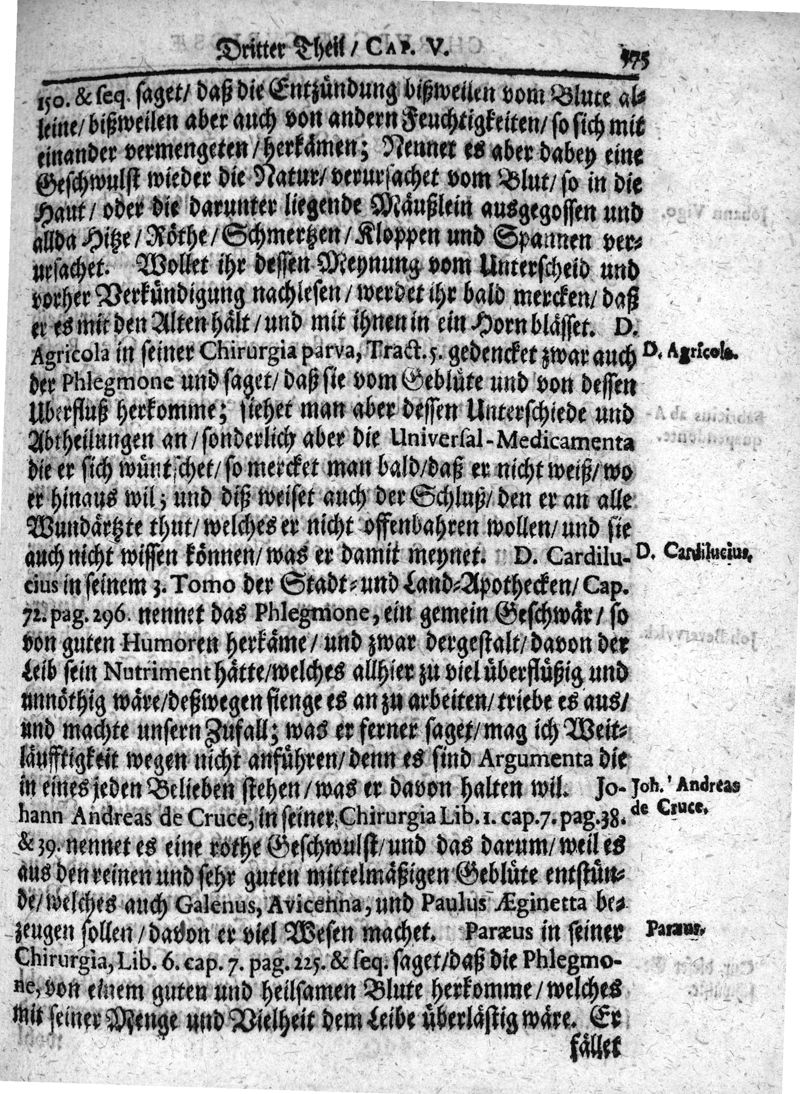 Dritter Theil / CAP. V. 575
150. & seq. saget / daß die Entzündung bißweilen vom Blute al-
leine / bißweilen aber auch von andern Feuchtigkeiten / so sich mit
einander vermengeten / herkämen; Nennet es aber dabey eine
Geschwulst wieder die Natur / verursachet vom Blut / so in die
Haut / oder die darunter liegende Mäußlein ausgegossen und
allda Hitze / Röthe / Schmertzen / Kloppen und Spannen ver-
ursachet. Wollet ihr dessen Meynung vom Unterscheid und
vorher Verkündigung nachlesen / werdet ihr bald mercken / daß
er es mit den Alten hält / und mit ihnen in ein Horn blässet. D.
Agricola in seiner Chirurgia parva, Tract. 5. gedencket zwar auch
D. Agricola.
der Phlegmone und saget / daß sie vom Geblüte und von dessen
Uberfluß herkomme; siehet man aber dessen Unterschiede und
Abtheilungen an / sonderlich aber die Universal-Medicamenta
die er sich wüntschet / so mercket man bald / daß er nicht weiß / wo
er hinaus wil; und diß weiset auch der Schluß / den er an alle
Wundärtzte thut / welches er nicht offenbahren wollen / und sie
auch nicht wissen können / was er damit meynet. D. Cardilu-
D. Cardilucius.
cius in seinem 3. Tomo der Stadt- und Land-Apothecken / Cap.
72. pag. 296. nennet das Phlegmone, ein gemein Geschwär / so
von guten Humoren herkäme / und zwar dergestalt / davon der
Leib sein Nutriment hätte / welches allhier zu viel überflüßig und
unnöthig wäre / deßwegen fienge es an zu arbeiten / triebe es aus /
und machte unsern Zufall; was er ferner saget / mag ich Weit-
läufftigkeit wegen nicht anführen / denn es sind Argumenta die
in eines jeden Belieben stehen / was er davon halten wil. Jo-
Joh. Andreas
de Cruce.
hann Andreas de Cruce, in seiner Chirurgia Lib. 1. cap. 7. pag. 38.
& 39. nennet es eine rothe Geschwulst / und das darum / weil es
aus den reinen und sehr guten mittelmäßigen Geblüte entstün-
de / welches auch Galenus, Avicenna, und Paulus Æginetta be-
zeugen sollen / davon er viel Wesen machet. Paræus in seiner
Paræus.
Chirurgia, Lib. 6. cap. 7. pag. 225. & seq. saget / daß die Phlegmo-
ne, von einem guten und heilsamen Blute herkomme / welches
mit seiner Menge und Vielheit dem Leibe überlästig wäre. Er
fället